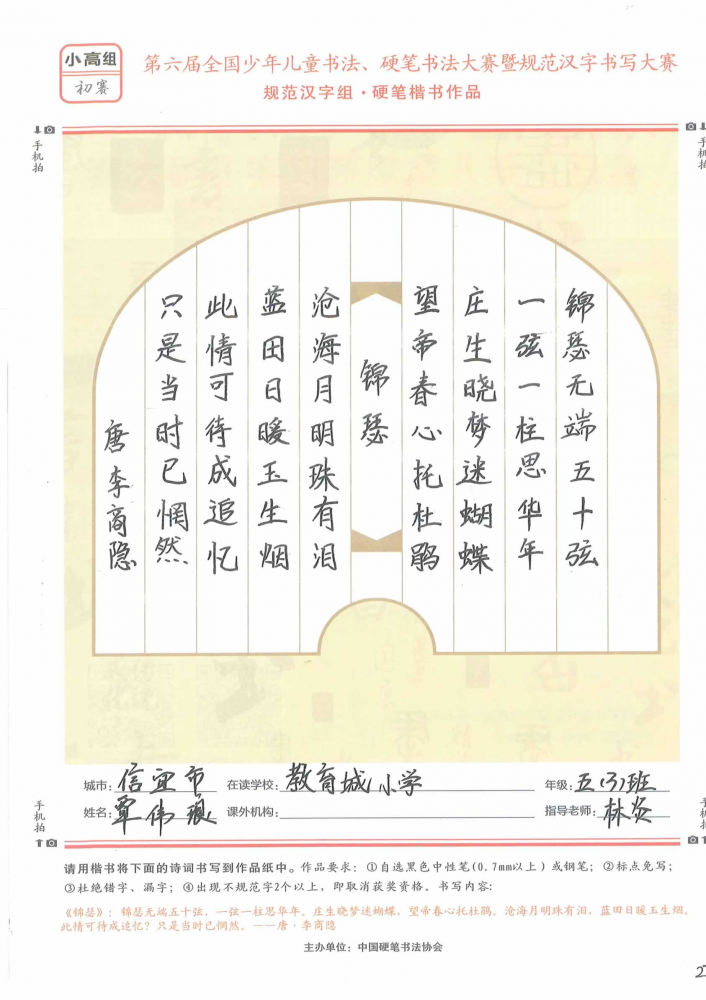 小高组
初赛
第六届全国少年儿童书法、硬笔书法大赛暨规范汉字书写大赛
规范汉字组·硬笔楷书作品
手机拍
手机拍
锦瑟无端五十弦
一弦一柱思华年
庄生晓梦迷蝴蝶
望帝春心托杜鹃
锦瑟
沧海月明珠有泪
蓝田日暖玉生烟
此情可待成追忆
只是当时已惘然
唐李商隐
城市：信宜市 在读学校：教育城小学 年级：五(3)班
姓名：覃伟 课外机构： 指导老师：林炎
手机拍
手机拍
请用楷书将下面的诗词书写到作品纸中。作品要求：①自选黑色中性笔(0.7mm以上)或钢笔；②标点免写；
③杜绝错字、漏字；④出现不规范字2个以上，即取消获奖资格。书写内容：
《锦瑟》：锦瑟无端五十弦，一弦一柱思华年。庄生晓梦迷蝴蝶，望帝春心托杜鹃。沧海月明珠有泪，蓝田日暖玉生烟。
此情可待成追忆？只是当时已惘然。——唐·李商隐
主办单位：中国硬笔书法协会